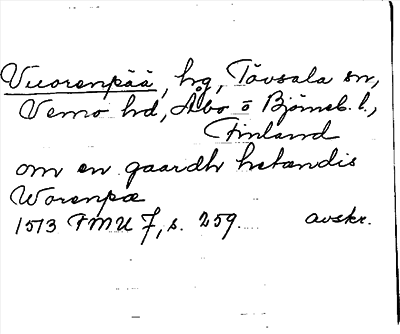 Vuorenpää, hg, Tövsala sn,
Vemo hd, Åbo o Björneb. l.,
Finland
om en gaardh hetandis
Worenpæ
1513 FMU 7, s. 259. avskr.